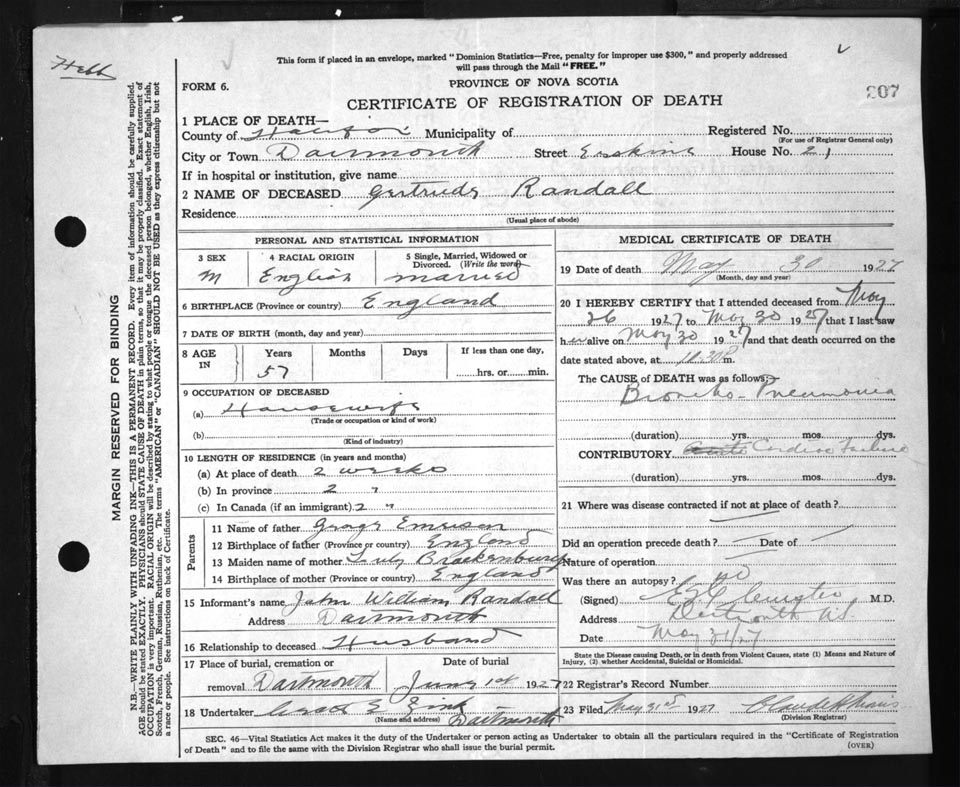 Hebb
This form if placed in an envelope, marked "Dominion Statistics—Free, penalty for improper use $300," and properly addressed
will pass through the Mail "FREE."
FORM 6.
PROVINCE OF NOVA SCOTIA
CERTIFICATE OF REGISTRATION OF DEATH
207
1 PLACE OF DEATH—
County of Halifax Municipality of Registered No.
(For use of Registrar General only)
City or Town Dartmouth Street Erskine House No. 21
If in hospital or institution, give name
2 NAME OF DECEASED Gertrude Randall
Residence
(Usual place of abode)
PERSONAL AND STATISTICAL INFORMATION
3 SEX
4 RACIAL ORIGIN
5 Single, Married, Widowed or
Divorced. (Write the word)
M English married
6 BIRTHPLACE (Province or country) England
7 DATE OF BIRTH (month, day and year)
8 AGE IN
Years Months Days If less than one day,
57 hrs. or min.
9 OCCUPATION OF DECEASED
(a) Housewife
(Trade or occupation or kind of work)
(b)
(Kind of industry)
10 LENGTH OF RESIDENCE (in years and months)
(a) At place of death 2 weeks
(b) In province 2 "
(c) In Canada (if an immigrant) 2 "
Parents
11 Name of father George Emerson
12 Birthplace of father (Province or country) England
13 Maiden name of mother Brackenbury
14 Birthplace of mother (Province or country) England
15 Informant's name John William Randall
Address Dartmouth
16 Relationship to deceased Husband
17 Place of burial, cremation or
removal Dartmouth
Date of burial
June 1st 1927
18 Undertaker
(Name and address) Dartmouth
MEDICAL CERTIFICATE OF DEATH
19 Date of death May 30 1927
(Month, day and year)
20 I HEREBY CERTIFY that I attended deceased from May
26 1927 to May 30 1927 that I last saw
her alive on May 30 1927 and that death occurred on the
date stated above, at m.
The CAUSE of DEATH was as follows:
Broncho-Pneumonia
(duration) yrs. mos. dys.
CONTRIBUTORY. Cardiac Failure
(duration) yrs. mos. dys.
21 Where was disease contracted if not at place of death?
Did an operation precede death? Date of
Nature of operation
Was there an autopsy? no
(Signed) M.D.
Address Dartmouth NS
Date May 31/27
State the Disease causing Death, or in death from Violent Causes, state (1) Means and Nature of
Injury, (2) whether Accidental, Suicidal or Homicidal.
22 Registrar's Record Number
23 Filed May 31st 1927
(Division Registrar)
SEC. 46—Vital Statistics Act makes it the duty of the Undertaker or person acting as Undertaker to obtain all the particulars required in the "Certificate of Registration
of Death" and to file the same with the Division Registrar who shall issue the burial permit.
(OVER)
MARGIN RESERVED FOR BINDING
N.B.—WRITE PLAINLY WITH UNFADING INK—THIS IS A PERMANENT RECORD. Every item of information should be carefully supplied.
AGE should be stated EXACTLY. PHYSICIANS should STATE CAUSE OF DEATH in plain terms, so that it may be properly classified. Exact statement of
OCCUPATION is very important. RACIAL ORIGIN will be described by stating to what people or tongue the deceased person belonged, whether English, Irish,
Scotch, French, German, Russian, Ruthenian, etc. The terms "AMERICAN" or "CANADIAN" SHOULD NOT BE USED as they express citizenship but not
a race or people. See instructions on back of Certificate.